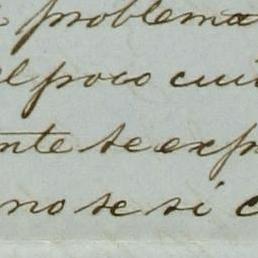 problema
el poco cui
nte se exp
no se si c